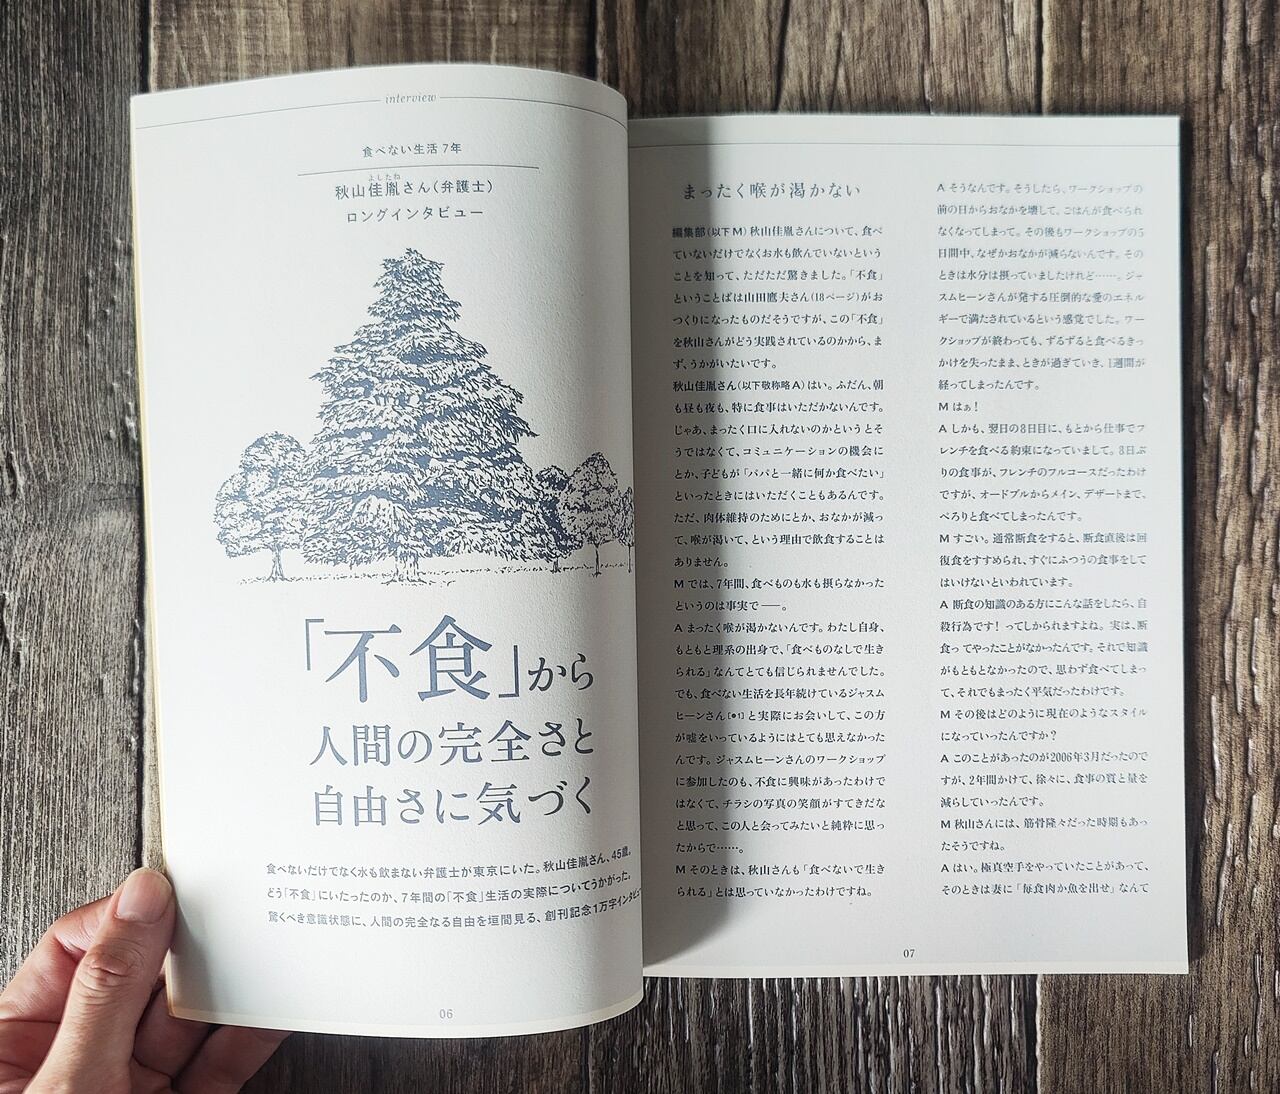 interview
食べない生活7年
よしたね
秋山佳胤さん(弁護士)
ロングインタビュー
「不食」から
人間の完全さと
自由さに気づく
食べないだけでなく水も飲まない弁護士が東京にいた。秋山佳胤さん、45歳。
どう「不食」にいたったのか、7年間の「不食」生活の実際についてうかがった。
驚くべき意識状態に、人間の完全なる自由を垣間見る、創刊記念1万字インタビュー
06
まったく喉が渇かない
編集部(以下M)秋山佳胤さんについて、食べ
ていないだけでなくお水も飲んでいないという
ことを知って、ただただ驚きました。「不食」
ということばは山田鷹夫さん(18ページ)がお
つくりになったものだそうですが、この「不食」
を秋山さんがどう実践されているのかから、ま
ず、うかがいたいです。
秋山佳胤さん(以下敬称略A)はい。ふだん、朝
も昼も夜も、特に食事はいただかないんです。
じゃあ、まったく口に入れないのかというとそ
うではなくて、コミュニケーションの機会に
とか、子どもが「パパと一緒に何か食べたい」
といったときにはいただくこともあるんです。
ただ、肉体維持のためにとか、おなかが減っ
て、喉が渇いて、という理由で飲食することは
ありません。
M では、7年間、食べものも水も摂らなかった
というのは事実で──。
A まったく喉が渇かないんです。わたし自身、
もともと理系の出身で、「食べものなしで生き
られる」なんてとても信じられませんでした。
でも、食べない生活を長年続けているジャスム
ヒーンさん[●1]と実際にお会いして、この方
が嘘をいっているようにはとても思えなかった
んです。ジャスムヒーンさんのワークショップ
に参加したのも、不食に興味があったわけで
はなくて、チラシの写真の笑顔がすてきだな
と思って、この人と会ってみたいと純粋に思っ
たからで……。
M そのときは、秋山さんも「食べないで生き
られる」とは思っていなかったわけですね。
A そうなんです。そうしたら、ワークショップの
前の日からおなかを壊して、ごはんが食べられ
なくなってしまって。その後もワークショップの5
日間中、なぜかおなかが減らないんです。その
ときは水分は摂っていましたけれど……。ジャ
スムヒーンさんが発する圧倒的な愛のエネル
ギーで満たされているという感覚でした。ワー
クショップが終わっても、ずるずると食べるきっ
かけを失ったまま、ときが過ぎていき、1週間が
経ってしまったんです。
M はぁ!
A しかも、翌日の8日目に、もとから仕事でフ
レンチを食べる約束になっていまして。8日ぶ
りの食事が、フレンチのフルコースだったわけ
ですが、オードブルからメイン、デザートまで、
ぺろりと食べてしまったんです。
M すごい。通常断食をすると、断食直後は回
復食をすすめられ、すぐにふつうの食事をして
はいけないといわれています。
A 断食の知識のある方にこんな話をしたら、自
殺行為です! ってしかられますよね。実は、断
食ってやったことがなかったんです。それで知識
がもともとなかったので、思わず食べてしまっ
て、それでもまったく平気だったわけです。
M その後はどのように現在のようなスタイル
になっていったんですか?
A このことがあったのが2006年3月だったので
すが、2年間かけて、徐々に、食事の質と量を
減らしていったんです。
M 秋山さんには、筋骨隆々だった時期もあっ
たそうですね。
A はい。極真空手をやっていたことがあって、
そのときは妻に「毎食肉か魚を出せ」なんて
07